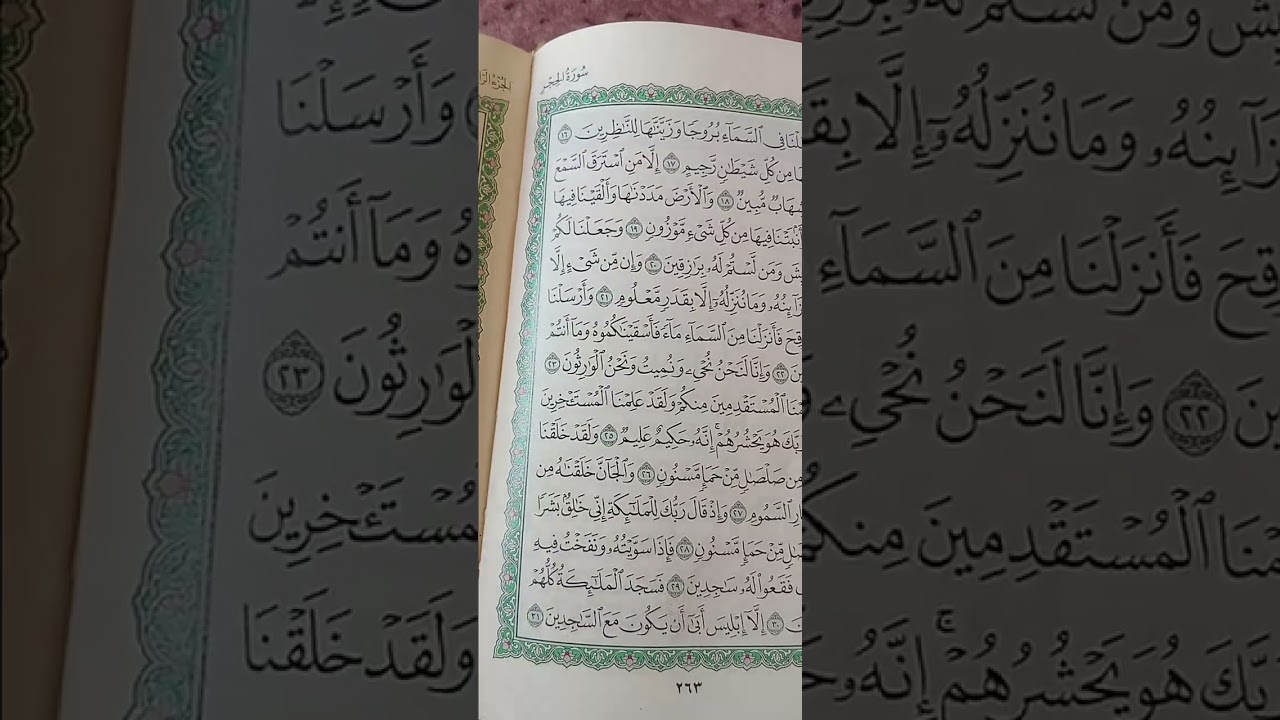 سُورَةُ الحِجْرِ
الجُزْءُ الرَّا
لْنَا فِي ٱلسَّمَآءِ بُرُوجًا وَزَيَّنَّٰهَا لِلنَّٰظِرِينَ ١٦
هَا مِن كُلِّ شَيْطَٰنٍ رَّجِيمٍ ١٧ إِلَّا مَنِ ٱسْتَرَقَ ٱلسَّمْعَ
شِهَابٌ مُّبِينٌ ١٨ وَٱلْأَرْضَ مَدَدْنَٰهَا وَأَلْقَيْنَا فِيهَا
أَنۢبَتْنَا فِيهَا مِن كُلِّ شَىْءٍ مَّوْزُونٍ ١٩ وَجَعَلْنَا لَكُمْ
يِشَ وَمَن لَّسْتُمْ لَهُۥ بِرَٰزِقِينَ ٢٠ وَإِن مِّن شَىْءٍ إِلَّا
زَآئِنُهُۥ وَمَا نُنَزِّلُهُۥٓ إِلَّا بِقَدَرٍ مَّعْلُومٍ ٢١ وَأَرْسَلْنَا
قِحَ فَأَنزَلْنَا مِنَ ٱلسَّمَآءِ مَآءً فَأَسْقَيْنَٰكُمُوهُ وَمَآ أَنتُمْ
ينَ ٢٢ وَإِنَّا لَنَحْنُ نُحْىِۦ وَنُمِيتُ وَنَحْنُ ٱلْوَٰرِثُونَ ٢٣
مْنَا ٱلْمُسْتَقْدِمِينَ مِنكُمْ وَلَقَدْ عَلِمْنَا ٱلْمُسْتَـْٔخِرِينَ
رَبَّكَ هُوَ يَحْشُرُهُمْ ۚ إِنَّهُۥ حَكِيمٌ عَلِيمٌ ٢٥ وَلَقَدْ خَلَقْنَا
مِن صَلْصَٰلٍ مِّنْ حَمَإٍ مَّسْنُونٍ ٢٦ وَٱلْجَآنَّ خَلَقْنَٰهُ مِن
ارِ ٱلسَّمُومِ ٢٧ وَإِذْ قَالَ رَبُّكَ لِلْمَلَٰٓئِكَةِ إِنِّى خَٰلِقٌۢ بَشَرًا
صَٰلٍ مِّنْ حَمَإٍ مَّسْنُونٍ ٢٨ فَإِذَا سَوَّيْتُهُۥ وَنَفَخْتُ فِيهِ
فَقَعُوا۟ لَهُۥ سَٰجِدِينَ ٢٩ فَسَجَدَ ٱلْمَلَٰٓئِكَةُ كُلُّهُمْ
نَ ٣٠ إِلَّآ إِبْلِيسَ أَبَىٰٓ أَن يَكُونَ مَعَ ٱلسَّٰجِدِينَ ٣١
٢٦٣